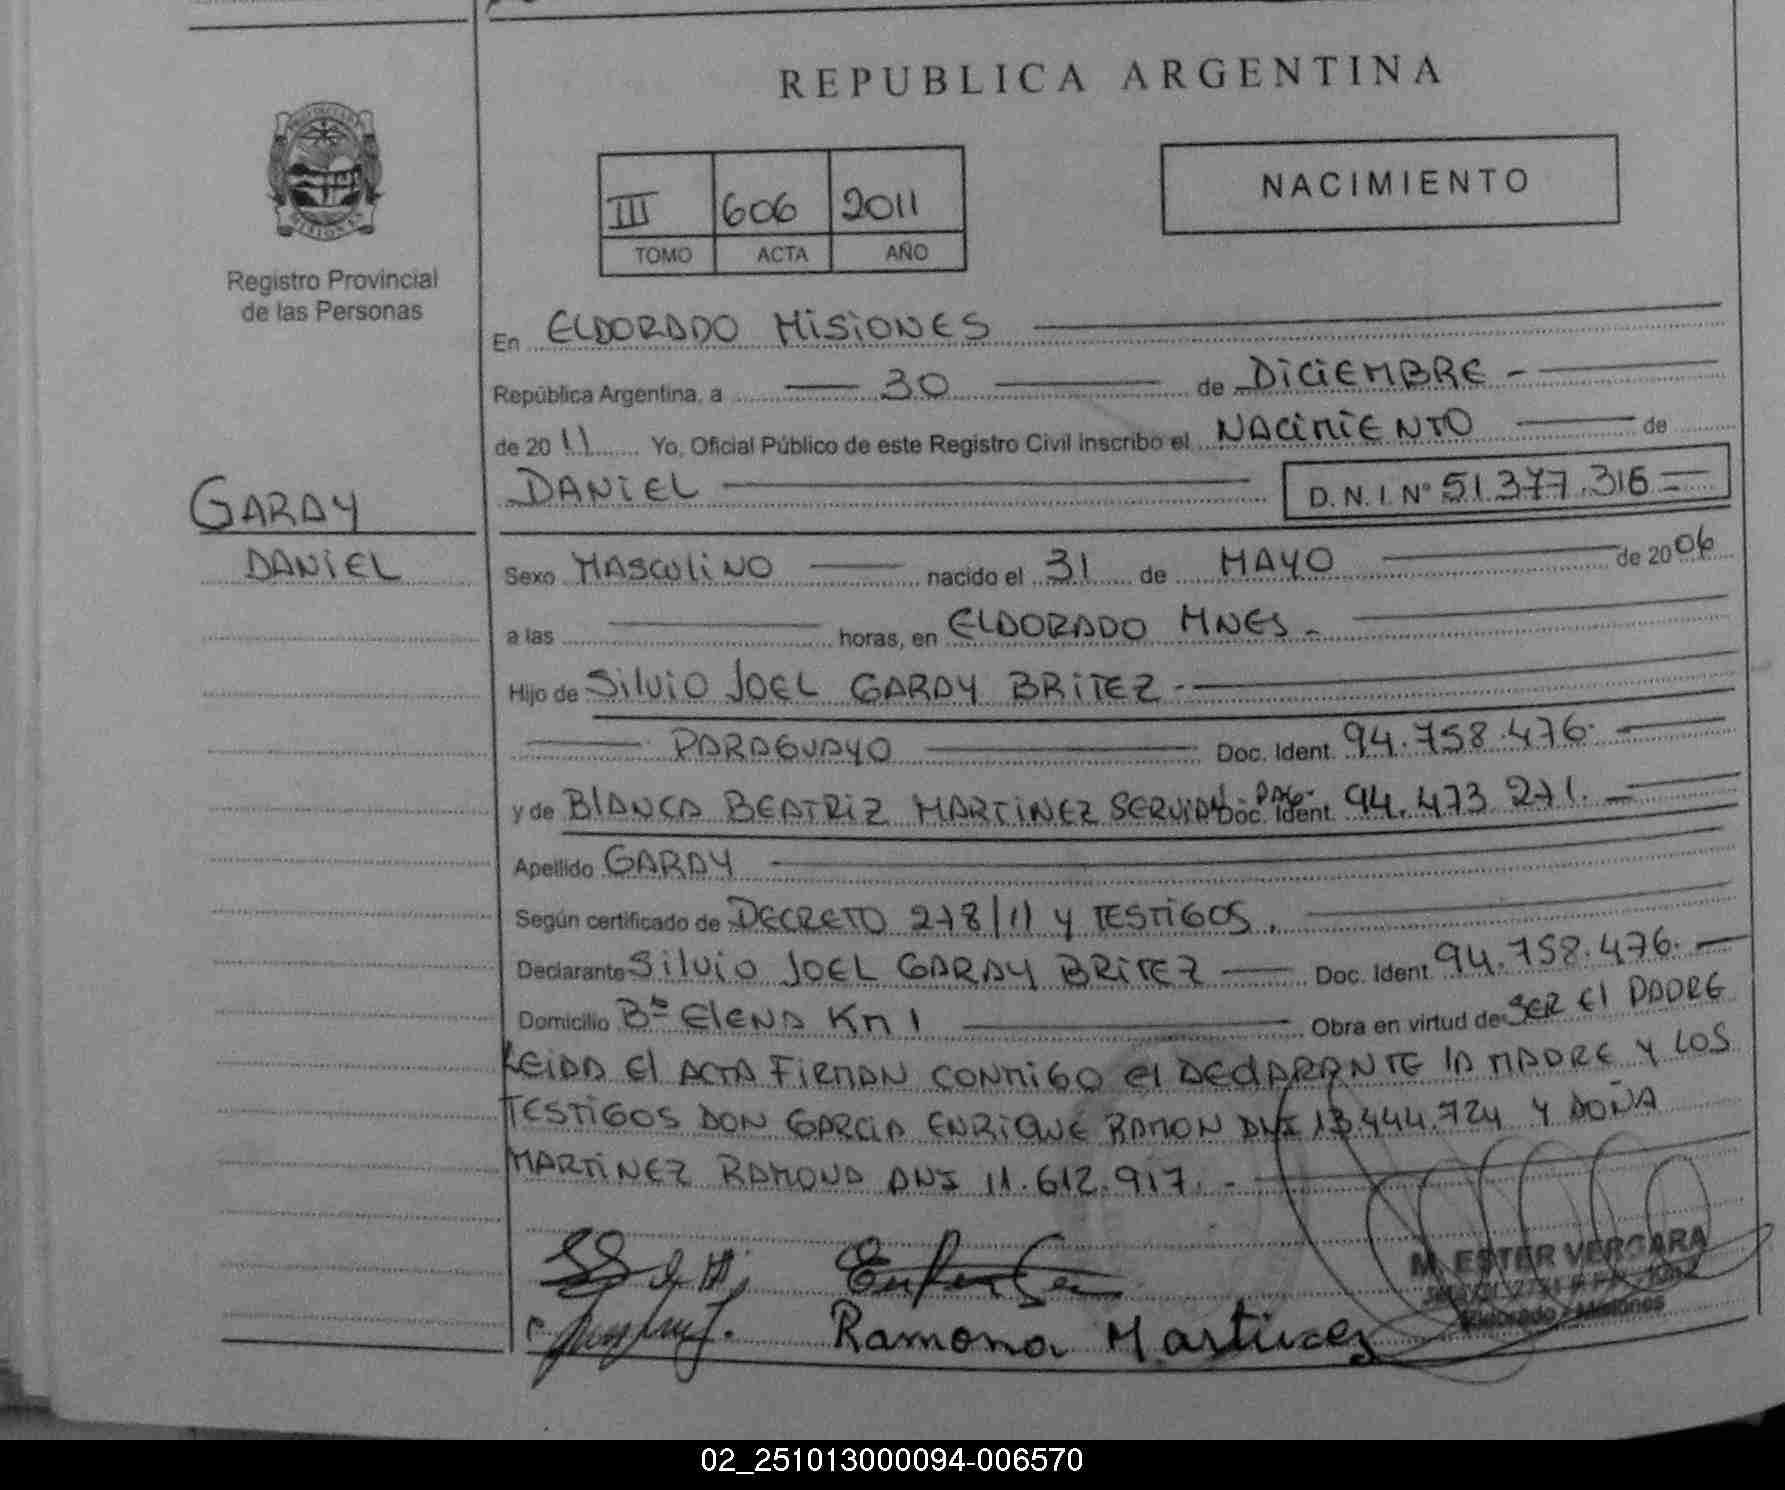 REPUBLICA ARGENTINA
NACIMIENTO
III 606 2011
TOMO ACTA AÑO
Registro Provincial
de las Personas
En ELDORADO MISIONES
República Argentina, a 30 de DICIEMBRE -
de 20 11 Yo, Oficial Público de este Registro Civil inscribo el NACIMIENTO de
DANIEL D.N.I. N° 51.377.316 =
GARAY
DANIEL
Sexo MASCULINO nacido el 31 de MAYO de 2006
a las horas, en ELDORADO MNES -
Hijo de SILVIO JOEL GARAY BRITEZ -
PARAGUAYO Doc. Ident. 94.758.476.
y de BLANCA BEATRIZ MARTINEZ SERVIAN Doc. Ident. 94.473.271. -
Apellido GARAY
Según certificado de DECRETO 278/11 Y TESTIGOS.
Declarante SILVIO JOEL GARAY BRITEZ Doc. Ident. 94.758.476. -
Domicilio Bº ELENA Km 1 Obra en virtud de SER El PADRE
LEIDA El ACTA FIRMAN CONMIGO el DECLARANTE LA MADRE Y LOS
TESTIGOS DON GARCIA ENRIQUE RAMON DNI 13.444.724 Y DOÑA
MARTINEZ RAMONA DNI 11.612.917. -
M. ESTER VERGARA
Eldorado - Misiones
Ramona Martinez
02_251013000094-006570